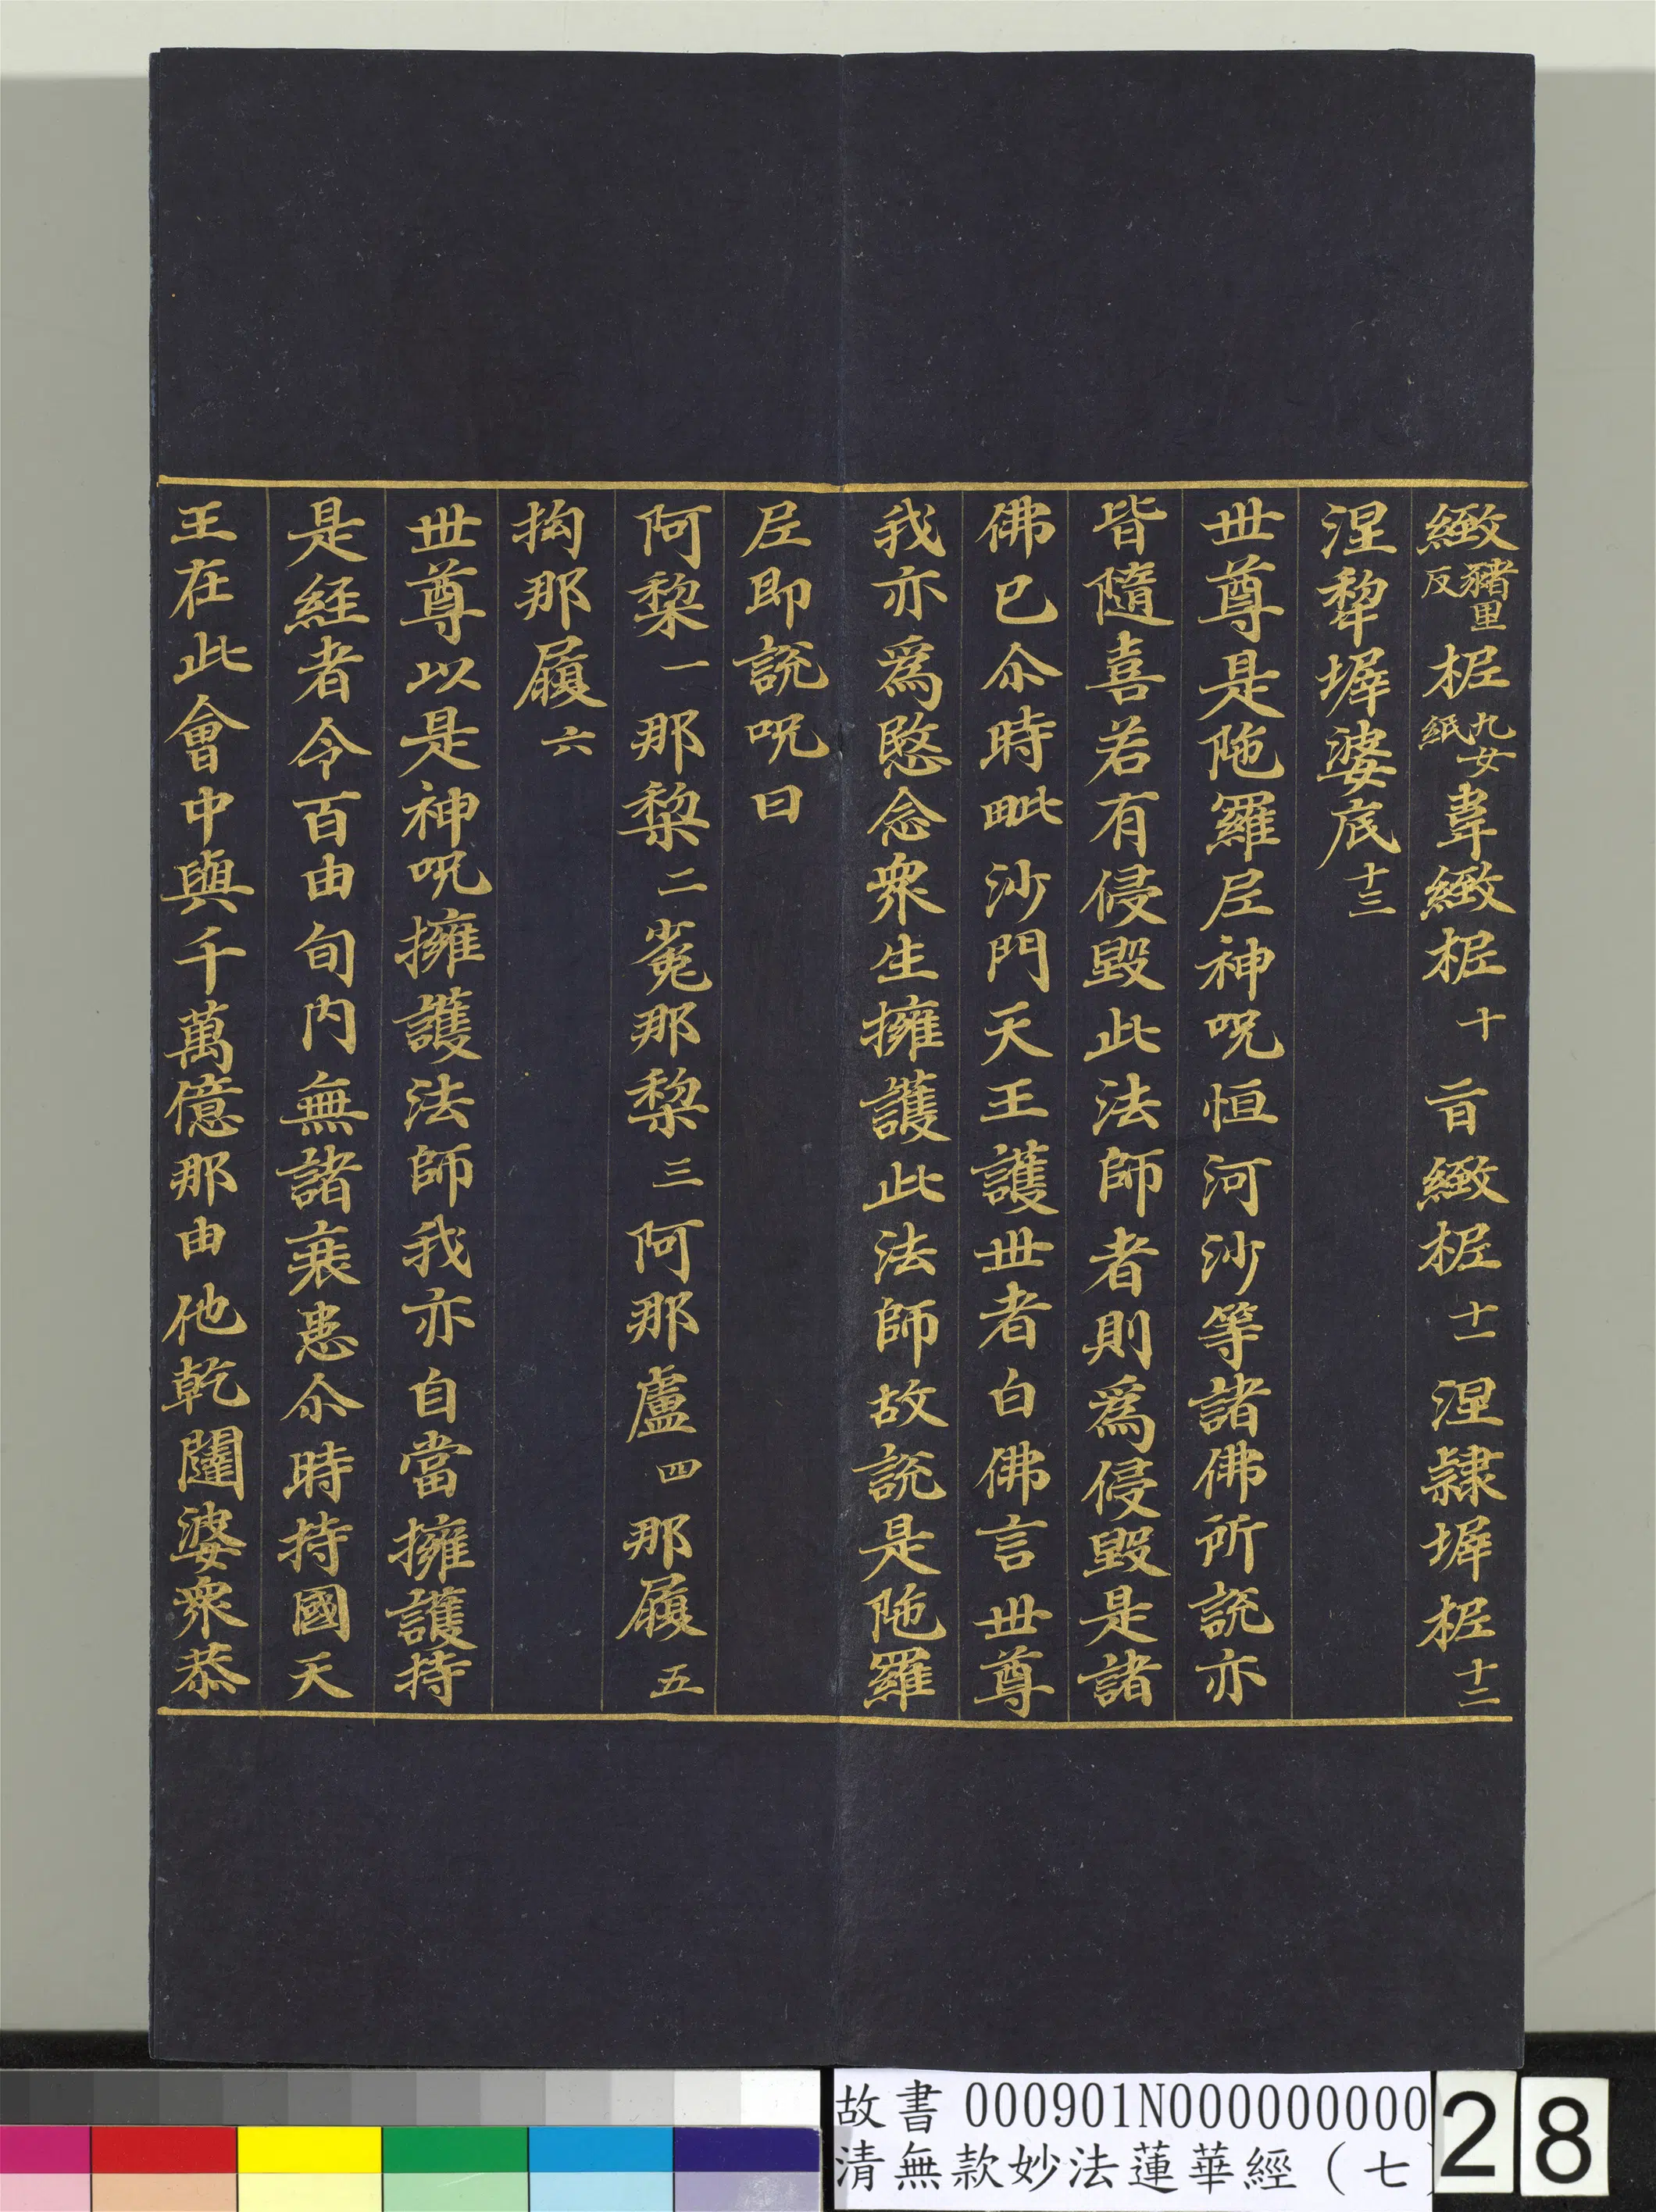 緻豬里反柅九女紙韋緻柅十 㫖緻柅十一 涅隷墀柅十二
涅犂墀婆底十三
世尊是陁羅尼神呪恒河沙等諸佛所說亦
皆隨喜若有侵毀此法師者則爲侵毀是諸
佛已尒時毗沙門天王護世者白佛言世尊
我亦爲愍念衆生擁護此法師故說是陁羅
尼即說呪曰
阿棃一那棃二㝹那棃三阿那盧四那履五
拘那履六
世尊以是神呪擁護法師我亦自當擁護持
是經者令百由旬内無諸衰患尒時持國天
王在此會中與千萬億那由他乾闥婆衆恭
故書 000901N000000000
清無款妙法蓮華經（七
28